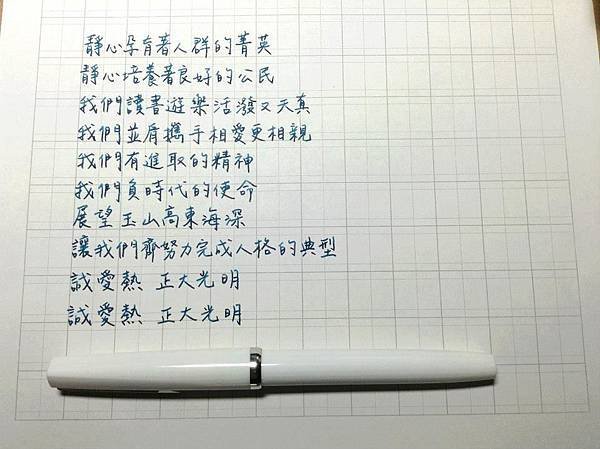 靜心孕育著人群的菁英
靜心培養著良好的公民
我們讀書遊樂活潑又天真
我們並肩攜手相愛更相親
我們有進取的精神
我們負時代的使命
展望玉山高東海深
讓我們齊努力完成人格的典型
誠愛熱 正大光明
誠愛熱 正大光明